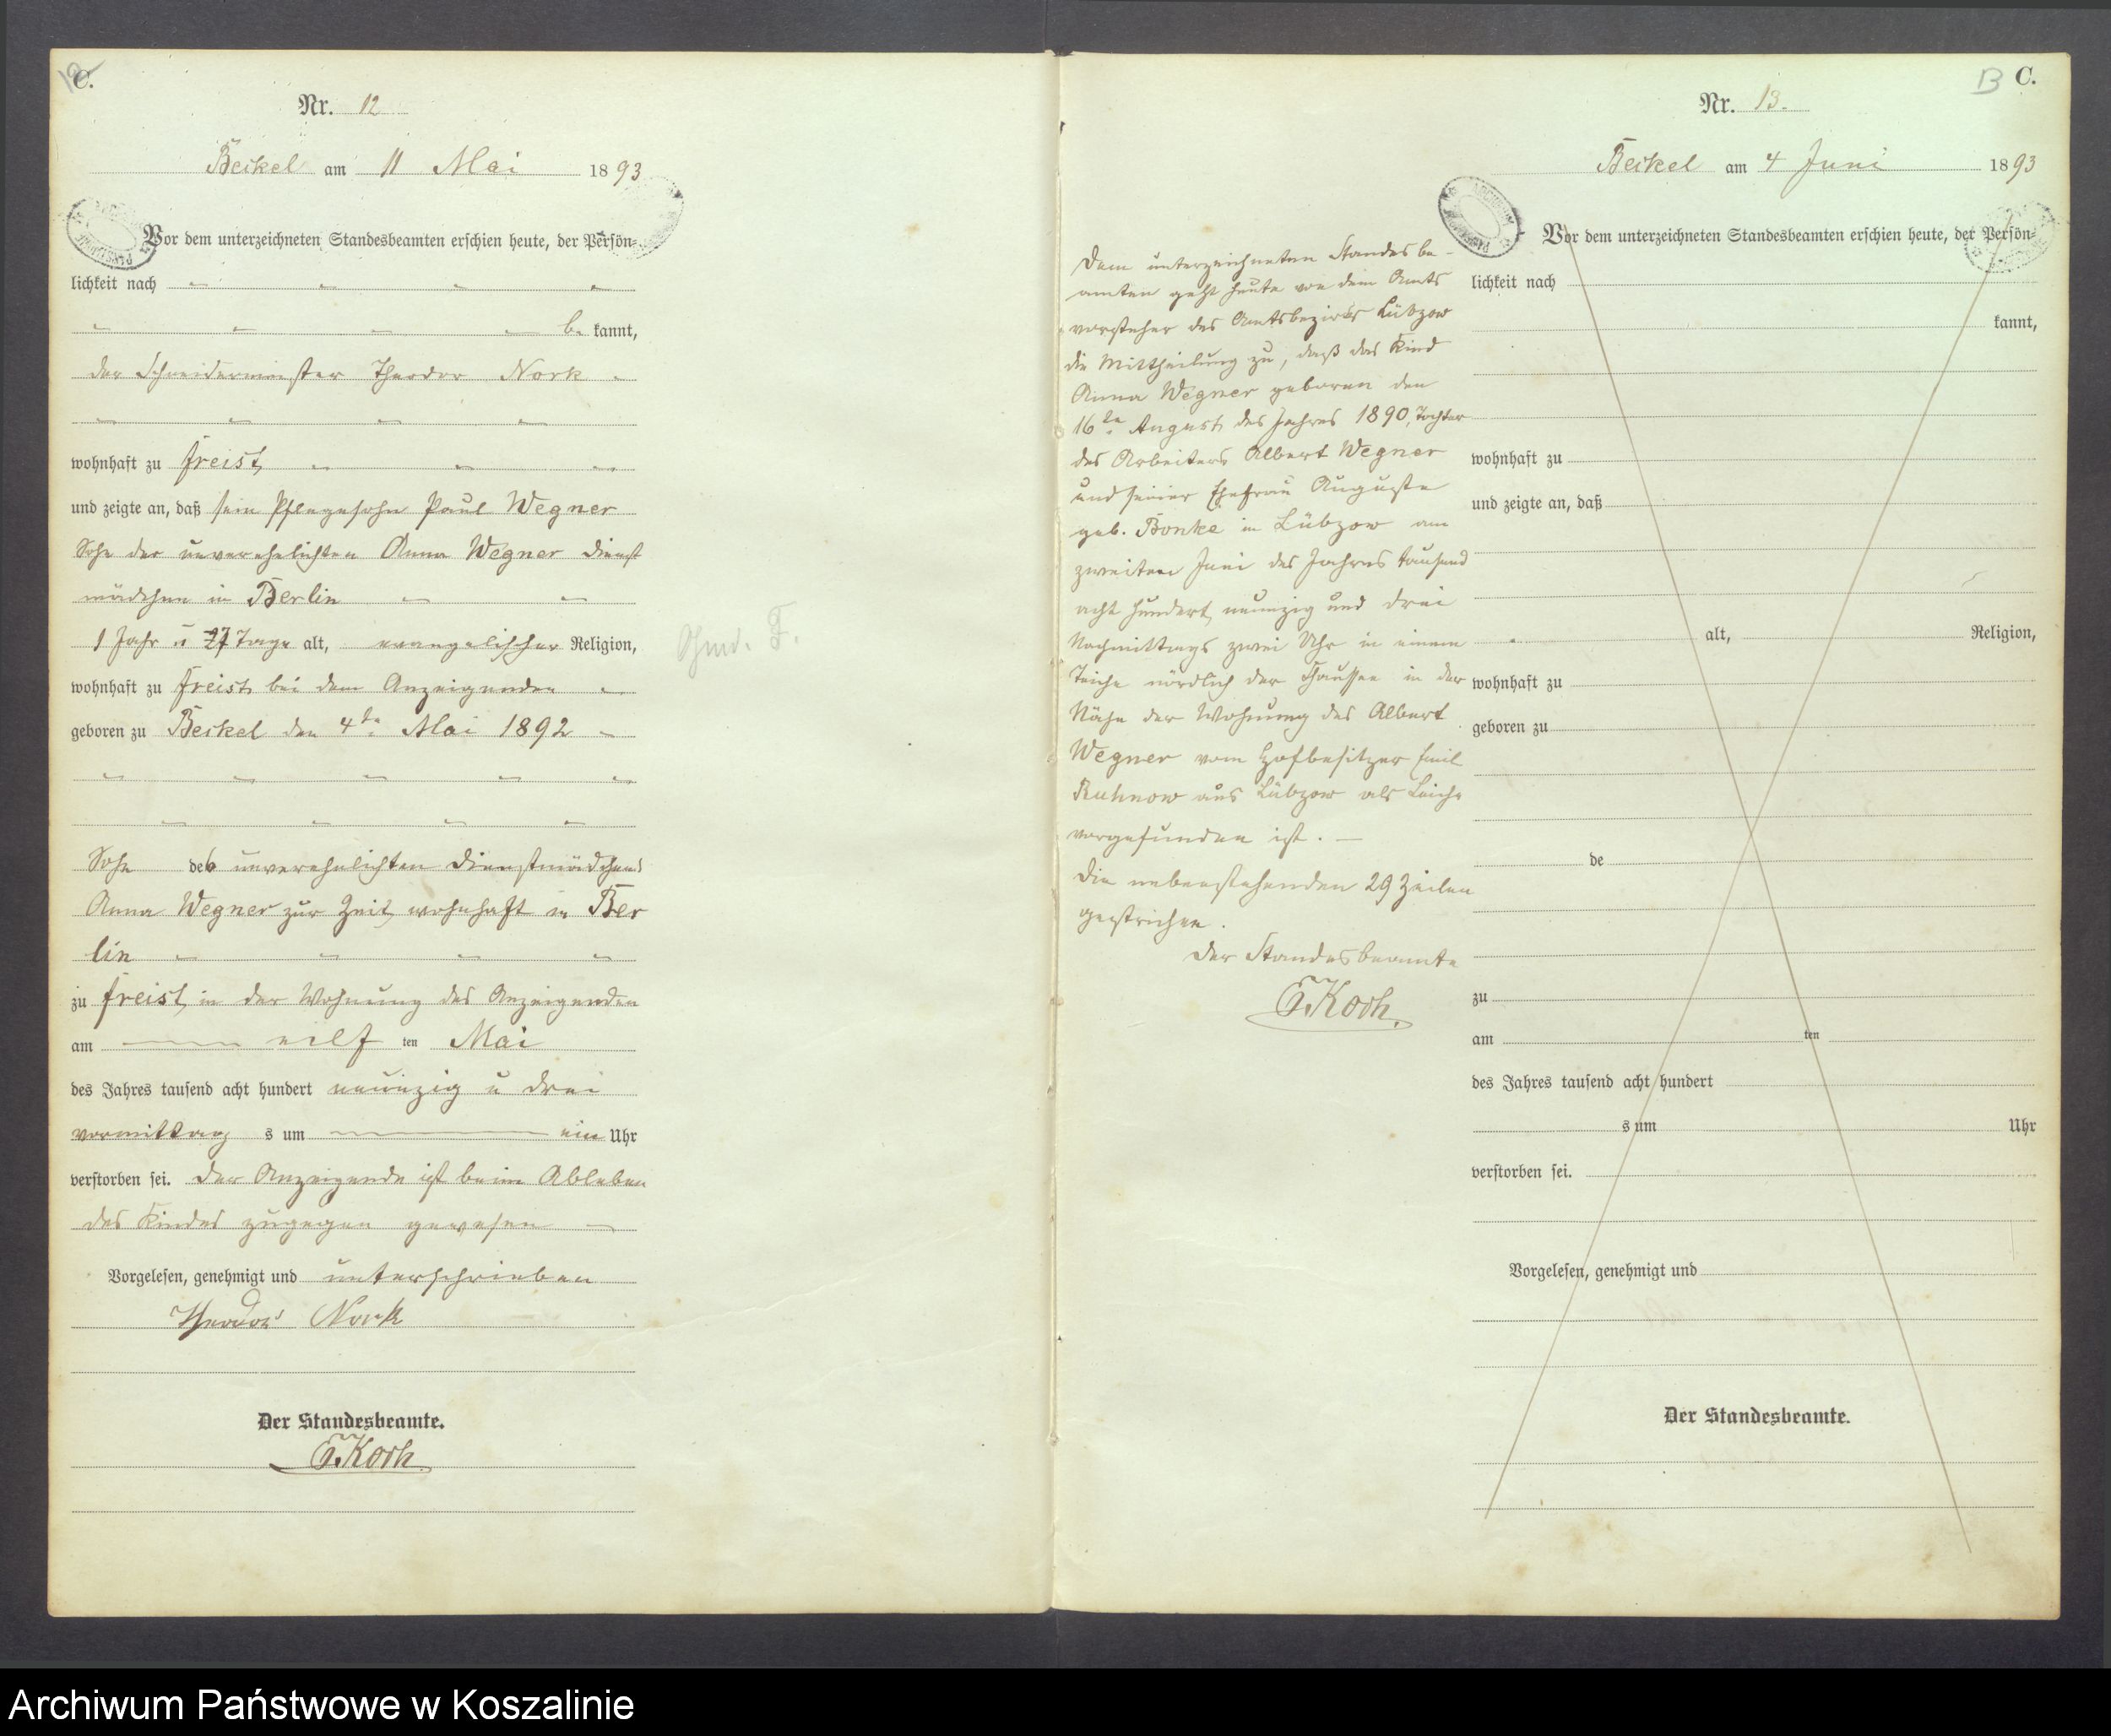 C.
Nr. 12
Beckel am 11 Mai 1893
Vor dem unterzeichneten Standesbeamten erschien heute, der Persön-
lichkeit nach
be kannt,
der Schneidermeister Theodor Nork
wohnhaft zu Freist
und zeigte an, daß sein Pflegesohn Paul Wegner
Sohn der unverehelichten Anna Wegner Dienst
mädchen in Berlin
1 Jahr u 7 Tage alt, evangelischer Religion,
wohnhaft zu Freist bei dem Anzeigenden
geboren zu Beckel den 4ten Mai 1892
Sohn des unverehelichten Dienstmädchens
Anna Wegner zur Zeit wohnhaft in Ber
lin
zu Freist in der Wohnung des Anzeigenden
am eilf ten Mai
des Jahres tausend acht hundert neunzig u drei
vormittag s um ein Uhr
verstorben sei. Der Anzeigende ist beim Ableben
des Kindes zugegen gewesen
Vorgelesen, genehmigt und unterschrieben
Theodor Nork
Der Standesbeamte.
E. Koch
13 C.
Nr. 13.
Beckel am 4 Juni 1893
Dem unterzeichneten Standesbe-
amten geht heute von dem Amts
vorsteher des Amtsbezirks Lübzow
die Mittheilung zu, daß das Kind
Anna Wegner geboren den
16ten August des Jahres 1890, Tochter
des Arbeiters Albert Wegner
und seiner Ehefrau Auguste
geb. Bonke in Lübzow am
zweiten Juni des Jahres tausend
acht hundert neunzig und drei
Nachmittags zwei Uhr in einem
Teiche nördlich der Chaussee in der
Nähe der Wohnung des Albert
Wegner vom Hofbesitzer Emil
Ruhnow aus Lübzow als Leiche
vorgefunden ist. —
Die nebenstehenden 29 Zeilen
gestrichen.
Der Standesbeamte
E. Koch.
Vor dem unterzeichneten Standesbeamten erschien heute, der Persön-
lichkeit nach
kannt,
wohnhaft zu
und zeigte an, daß
alt, Religion,
wohnhaft zu
geboren zu
de
zu
am ten
des Jahres tausend acht hundert
s um Uhr
verstorben sei.
Vorgelesen, genehmigt und
Der Standesbeamte.
Archiwum Państwowe w Koszalinie